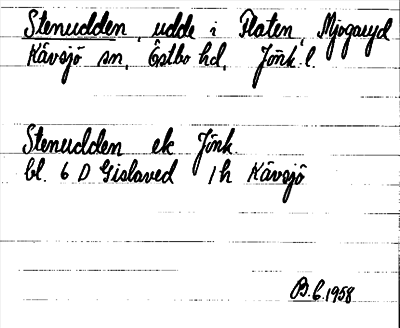 Stenudden, udde i Flaten, Mjogaryd
Kävsjö sn, Östbo hd, Jönk. l.
Stenudden ek Jönk.
bl. 6 D Gislaved 1h Kävsjö
B.6.1958